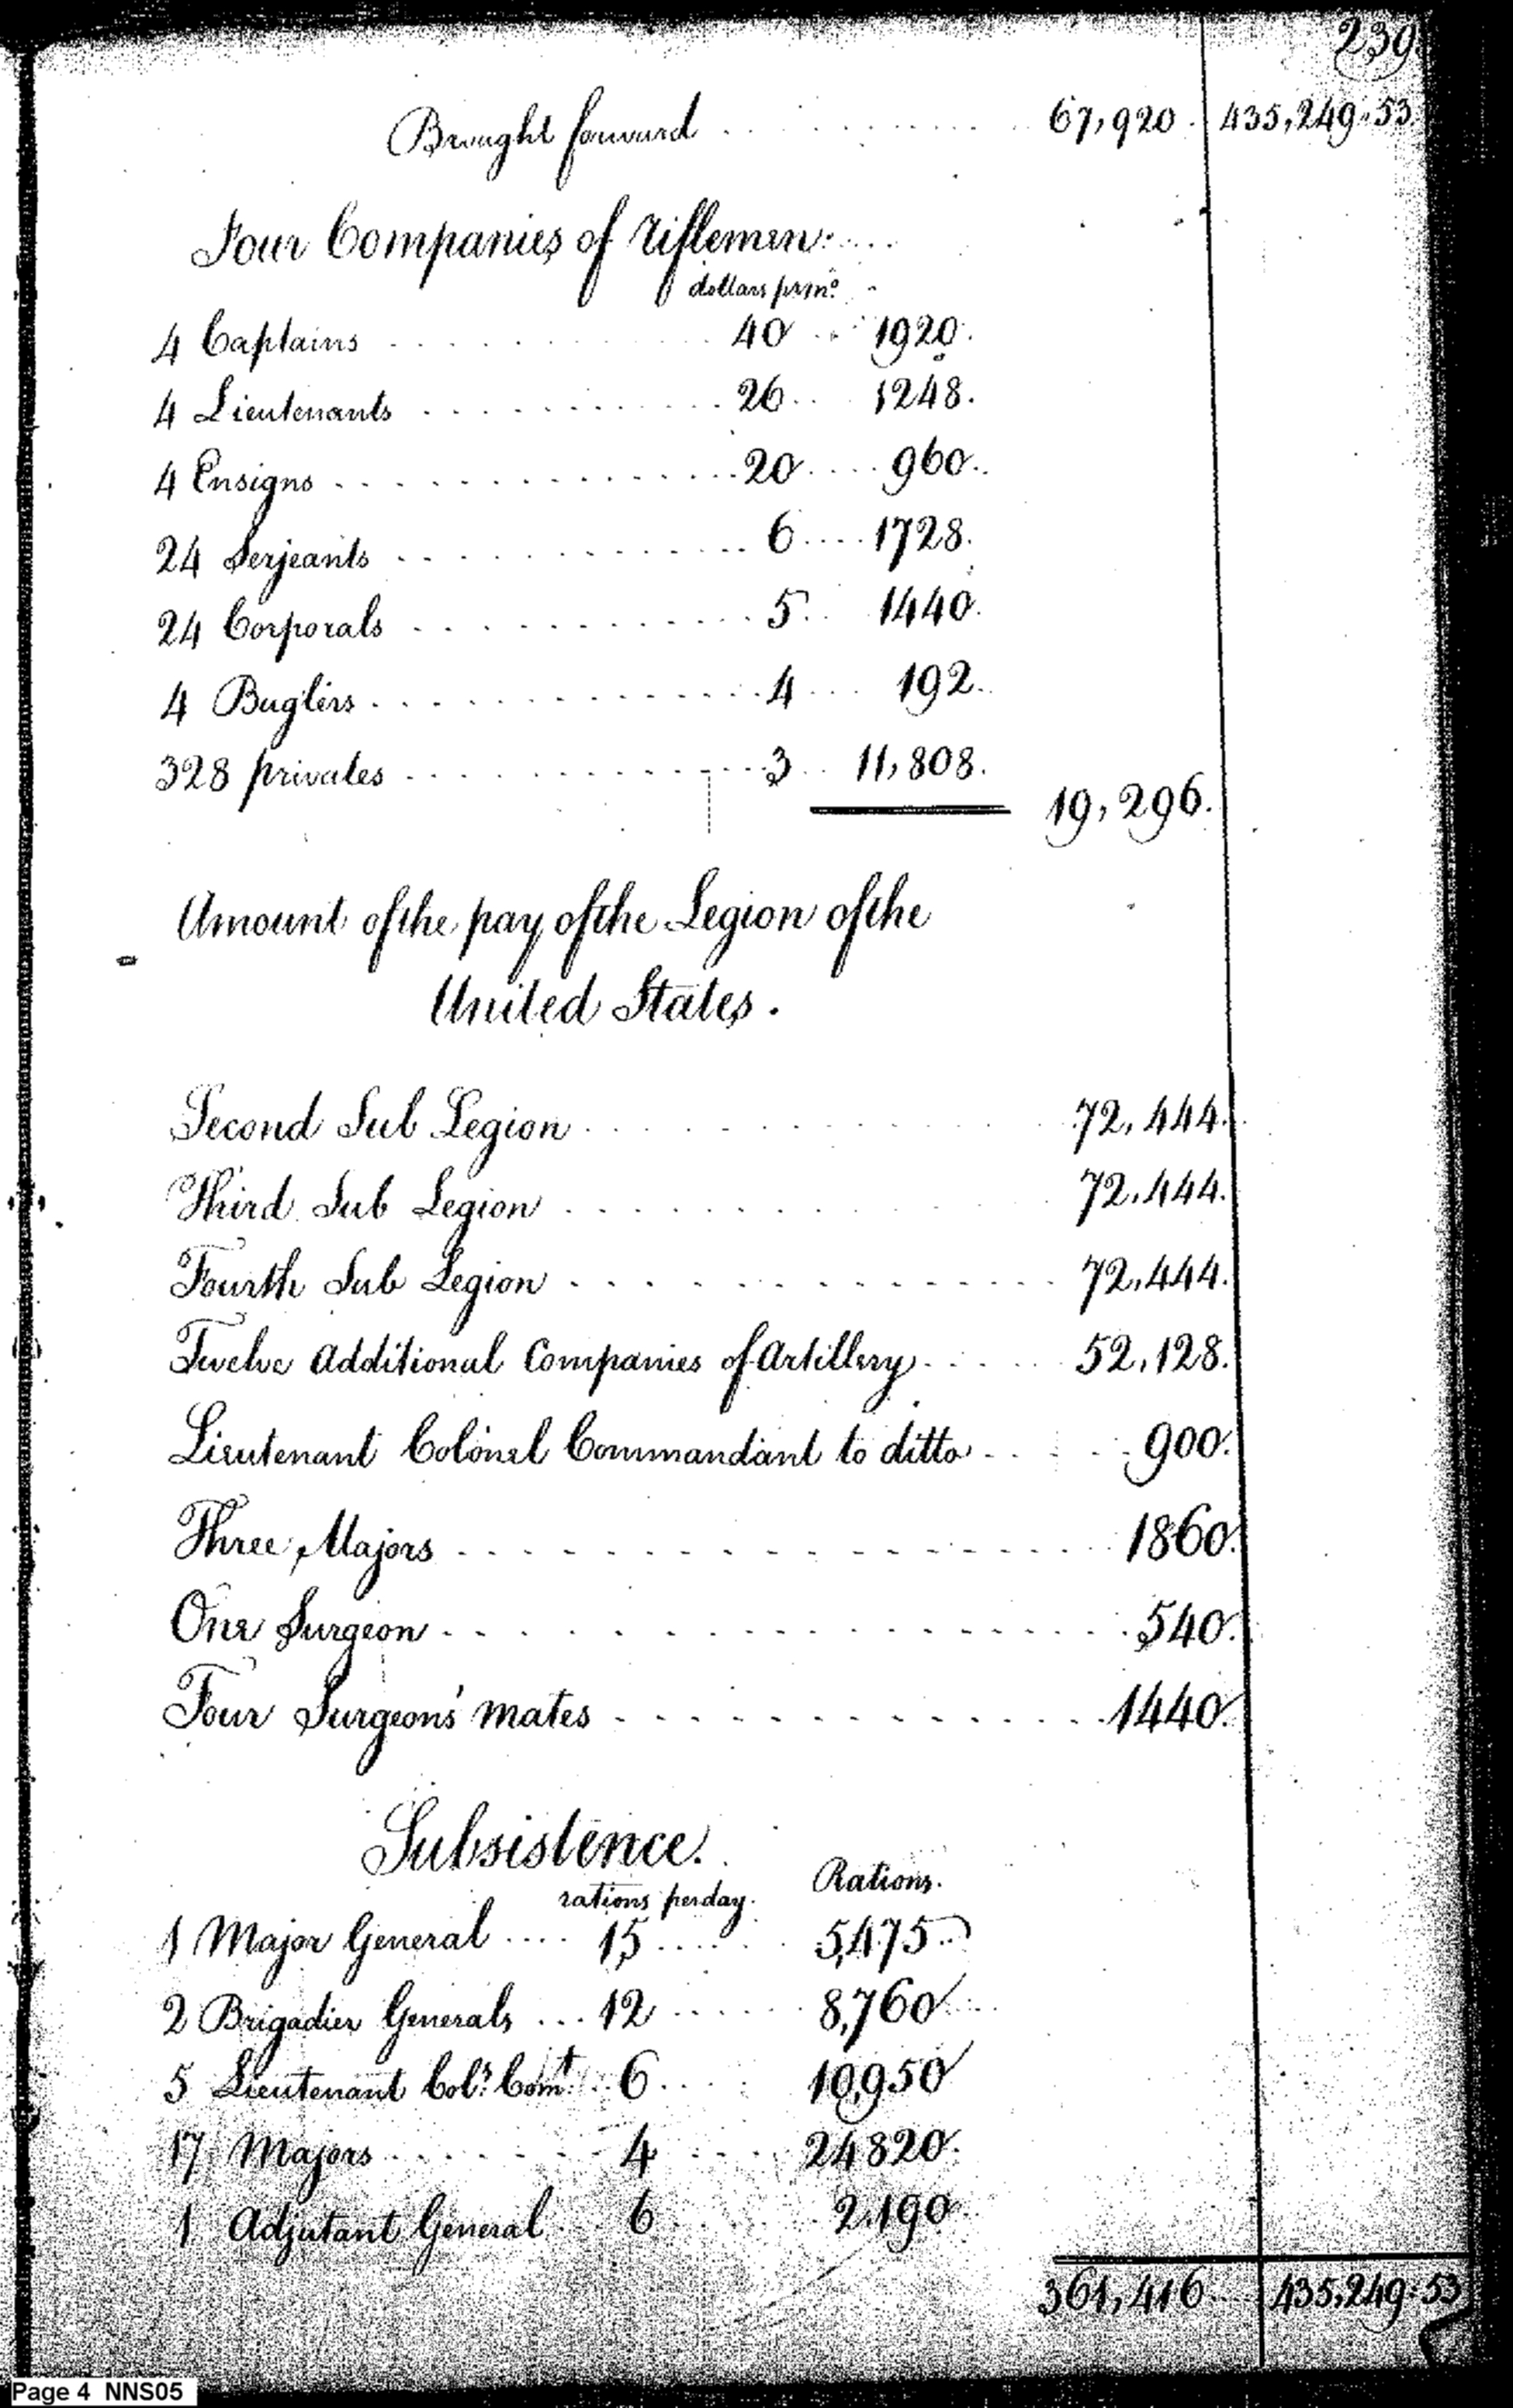 239
Brought forward 67,920. 435,249.53.
Four Companies of riflemen.
dollars pr mo.
4 Captains 40 1920.
4 Lieutenants 26 1248.
4 Ensigns 20 960.
24 Serjeants 6 1728.
24 Corporals 5 1440.
4 Buglers 4 192.
328 privates 3 11,808.
19,296.
Amount of the pay of the Legion of the
United States.
Second Sub Legion 72,444.
Third Sub Legion 72,444.
Fourth Sub Legion 72,444.
Twelve additional Companies of Artillery 52,128.
Lieutenant Colonel Commandant to ditto 900.
Three Majors 1860.
One Surgeon 540.
Four Surgeon's mates 1440.
Subsistence.
rations per day. Rations.
1 Major General 15 5,475.
2 Brigadier Generals 12 8,760.
5 Lieutenant Cols. Comt. 6 10,950
17 Majors 4 24820.
1 Adjutant General 6 2,190
361,416 435,249.53
Page 4 NNS05